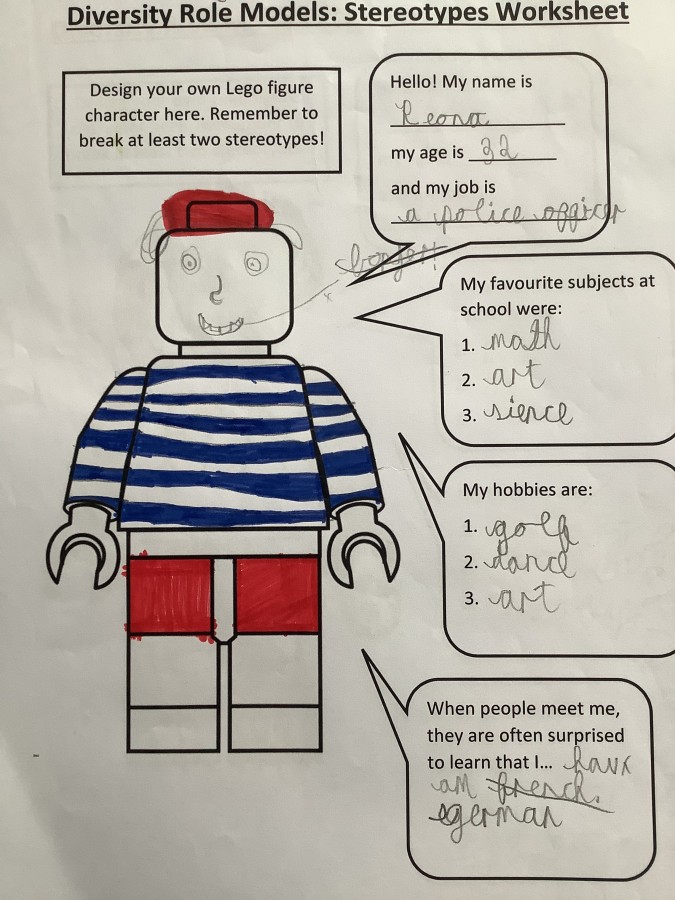 Diversity Role Models: Stereotypes Worksheet
Design your own Lego figure
character here. Remember to
break at least two stereotypes!
Hello! My name is
Reona
my age is 32
and my job is
a police officer
My favourite subjects at
school were:
1. math
2. art
3. sience
My hobbies are:
1. golf
2. dance
3. art
When people meet me,
they are often surprised
to learn that I...
am french.
german